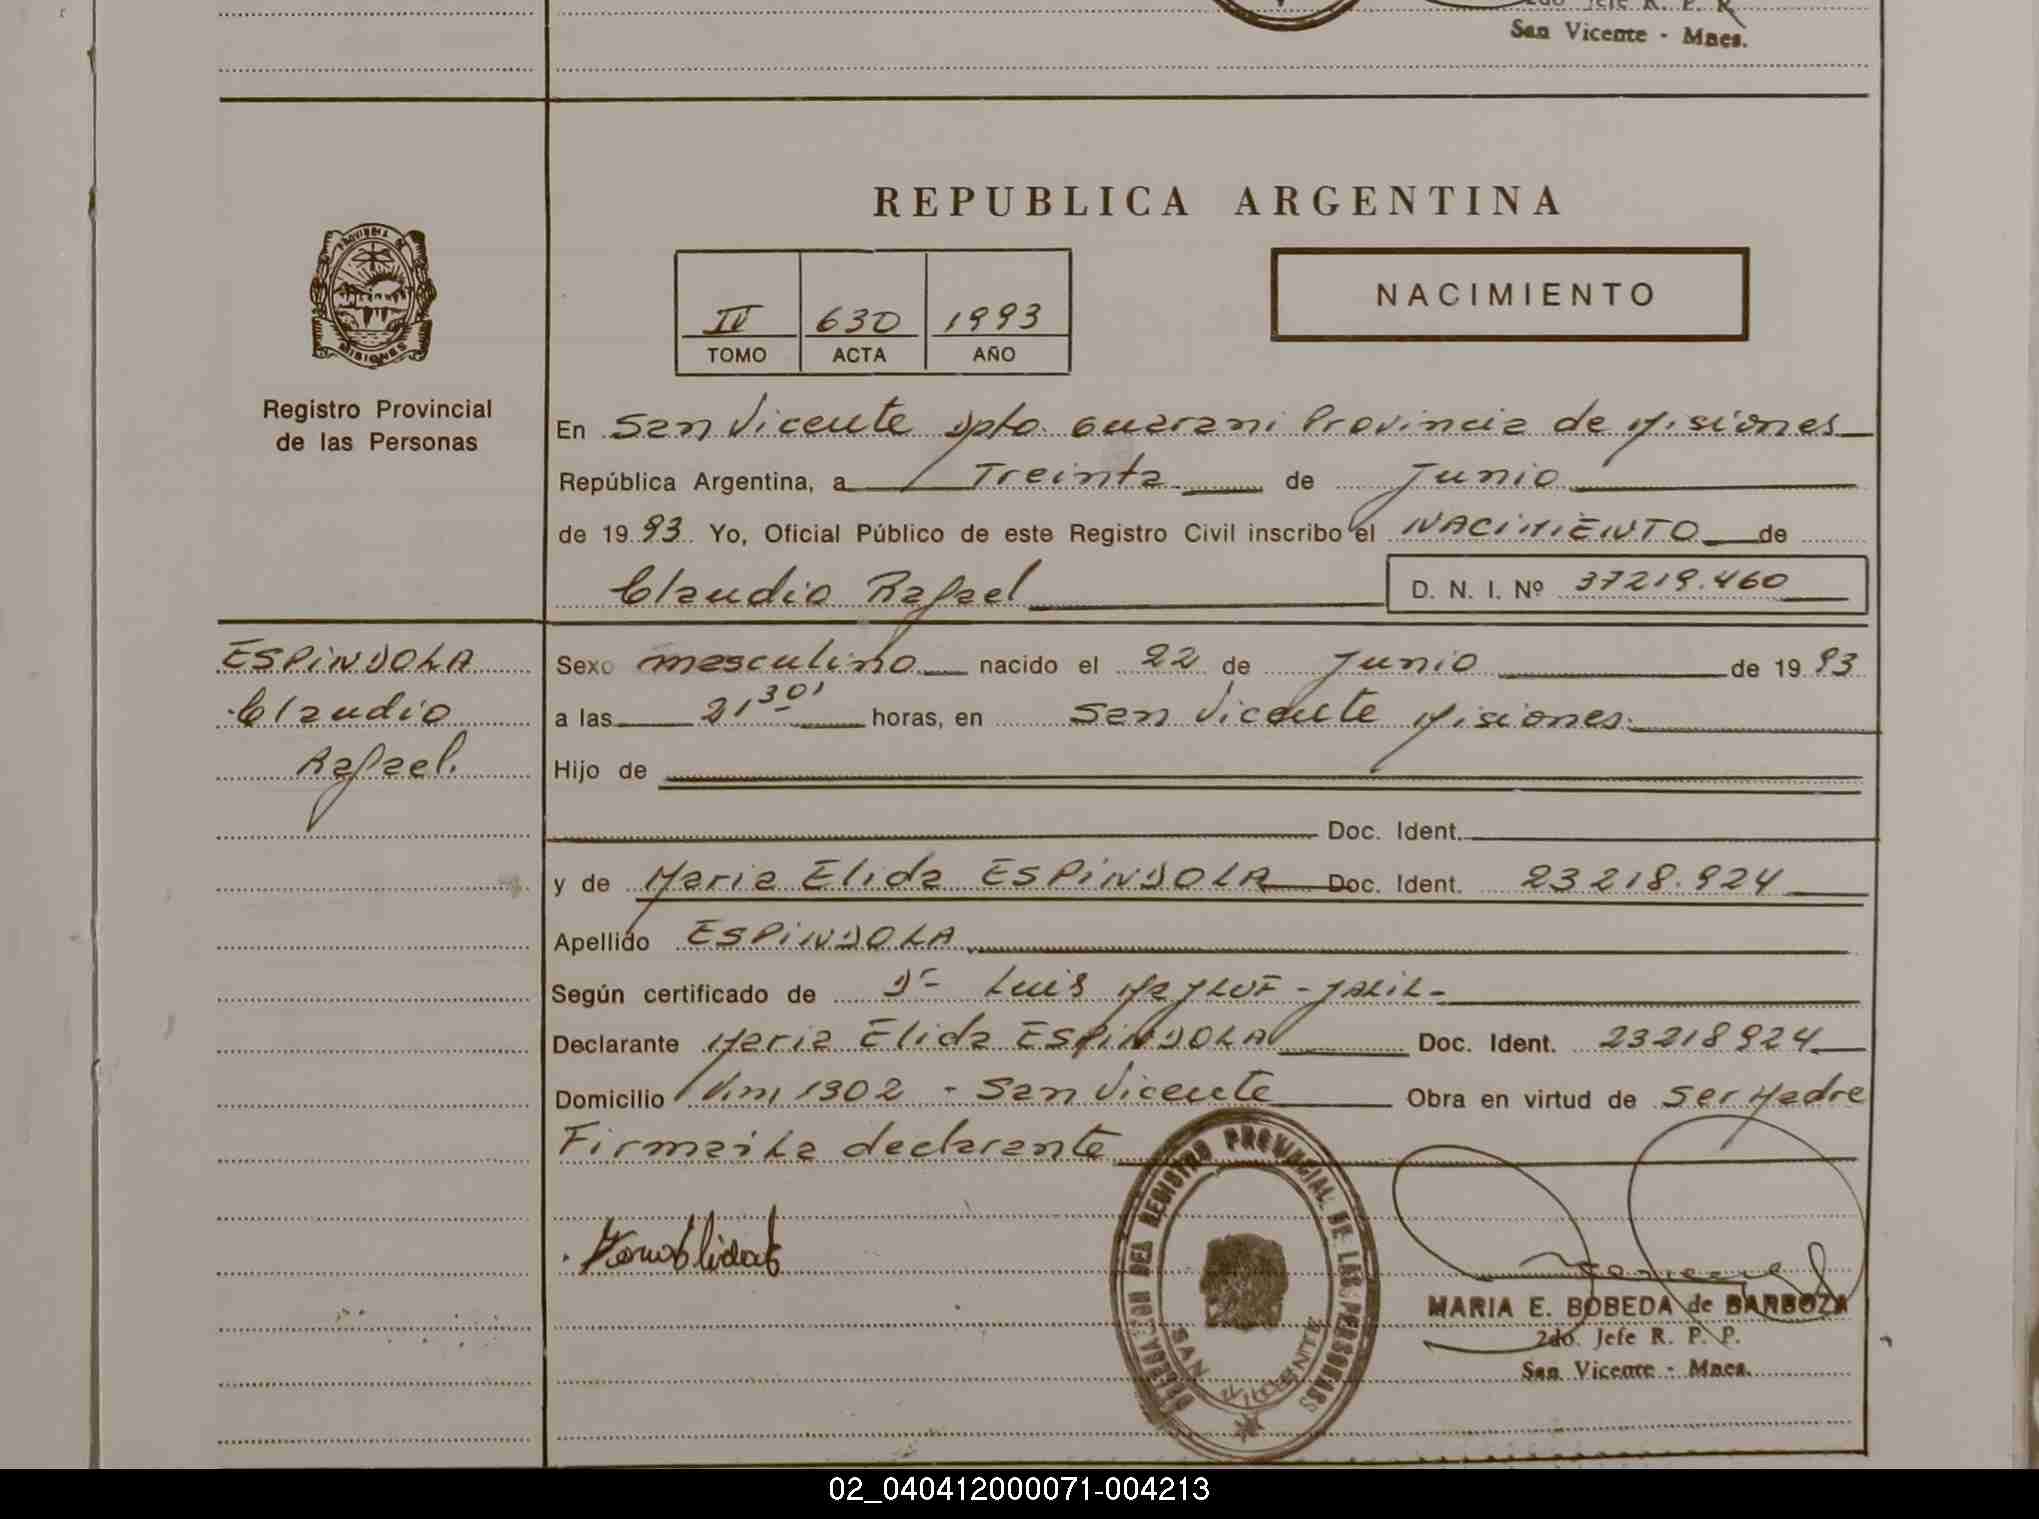 2do. Jefe R. P. P.
San Vicente - Mnes.
PROVINCIA DE
MISIONES
Registro Provincial
de las Personas
REPUBLICA ARGENTINA
NACIMIENTO
IV 630 1993
TOMO ACTA AÑO
En San Vicente Dpto. Guarani Provincia de Misiones
República Argentina, a Treinta de Junio
de 1993 Yo, Oficial Público de este Registro Civil inscribo el NACIMIENTO de
Claudio Rafael D. N. I. Nº 37219.460
ESPINDOLA
Claudio
Rafael.
Sexo masculino nacido el 22 de Junio de 1993
a las 21,30' horas, en San Vicente Misiones.
Hijo de
Doc. Ident.
y de Maria Elida ESPINDOLA Doc. Ident. 23218.924
Apellido ESPINDOLA
Según certificado de Dr Luis -JALIL-
Declarante Maria Elida ESPINDOLA Doc. Ident. 23218924
Domicilio Km 1302 - San Vicente Obra en virtud de ser Madre
Firma: La declarante
DELEGACION DEL REGISTRO PROVINCIAL DE LAS PERSONAS
SAN VICENTE
MARIA E. BOBEDA de BARBOZA
2do. Jefe R. P. P.
San Vicente - Mnes.
02_040412000071-004213